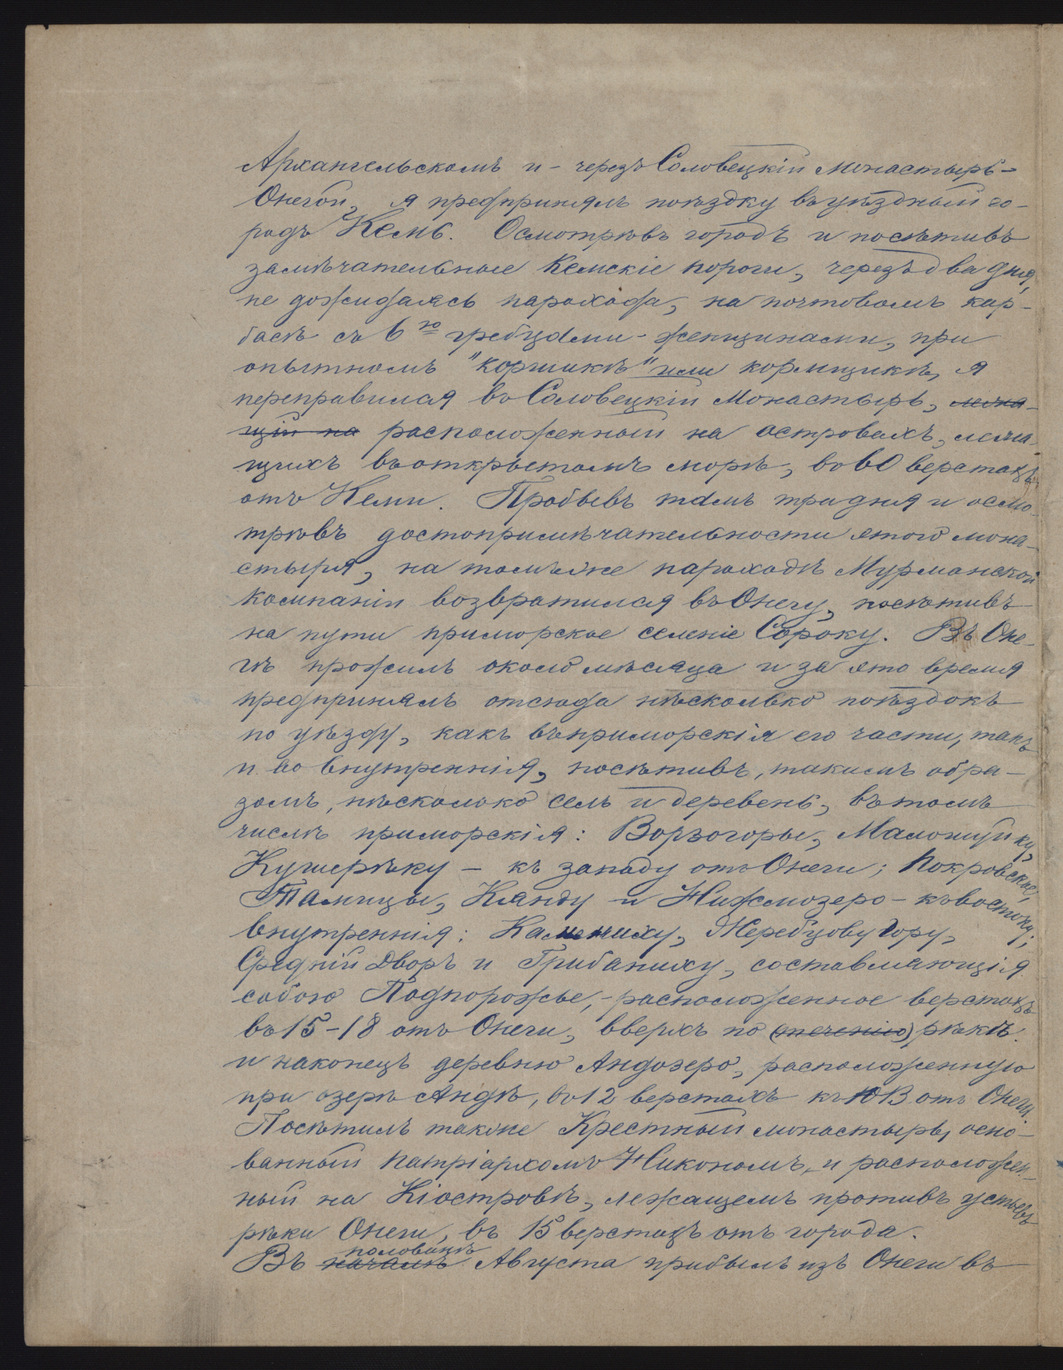 Архангельскомъ и - черезъ Соловецкій монастырь -
Онегой, я предпринялъ поѣздку въ уѣздный го-
родъ Кемь. Осмотрѣвъ городъ и посѣтивъ
замѣчательные Кемскіе пороги, черезъ два дня,
не дожидаясь парохода, на почтовомъ кар-
басѣ съ 6ю гребцами - женщинами, при
опытномъ "коршикѣ" или кормщикѣ, я
переправился въ Соловецкій Монастырь, лежа-
щій на расположенный на островахъ, лежа-
щихъ въ открытомъ морѣ, въ 60 верстахъ
отъ Кеми. Пробывъ тамъ три дня и осмо-
трѣвъ достопримѣчательности этого мона-
стыря, на томъ же пароходѣ Мурманской
Компаніи возвратился въ Онегу, посѣтивъ
на пути приморское селеніе Сороку. Въ Оне-
гѣ прожилъ около мѣсяца и за это время
предпринялъ отсюда нѣсколько поѣздокъ
по уѣзду, какъ въ приморскія его части, такъ
и во внутреннія, посѣтивъ, такимъ обра-
зомъ, нѣсколько селъ и деревень, въ томъ
числѣ приморскія: Ворзогоры, Малошуйку,
Кушерѣку - къ западу отъ Онеги; Покровское,
Тамицы, Кянду и Нижмозеро - къ востоку;
внутреннія: Камениху, Жеребцову Гору,
Средній Дворъ и Грибаниху, составляющія
собою Подпорожье, - расположенное верстахъ
въ 15-18 отъ Онеги, вверхъ по (теченію) рѣкѣ
и наконецъ деревню Андозеро, расположенную
при озерѣ Андѣ, въ 12 верстахъ къ ЮВ отъ Онеги.
Посѣтилъ также Крестный монастырь, осно-
ванный Патріархомъ Никономъ, и расположен-
ный на Кіостровѣ, лежащемъ противъ устьевъ
рѣки Онеги, въ 15 верстахъ отъ города.
Въ началѣ половинѣ Августа прибылъ изъ Онеги въ